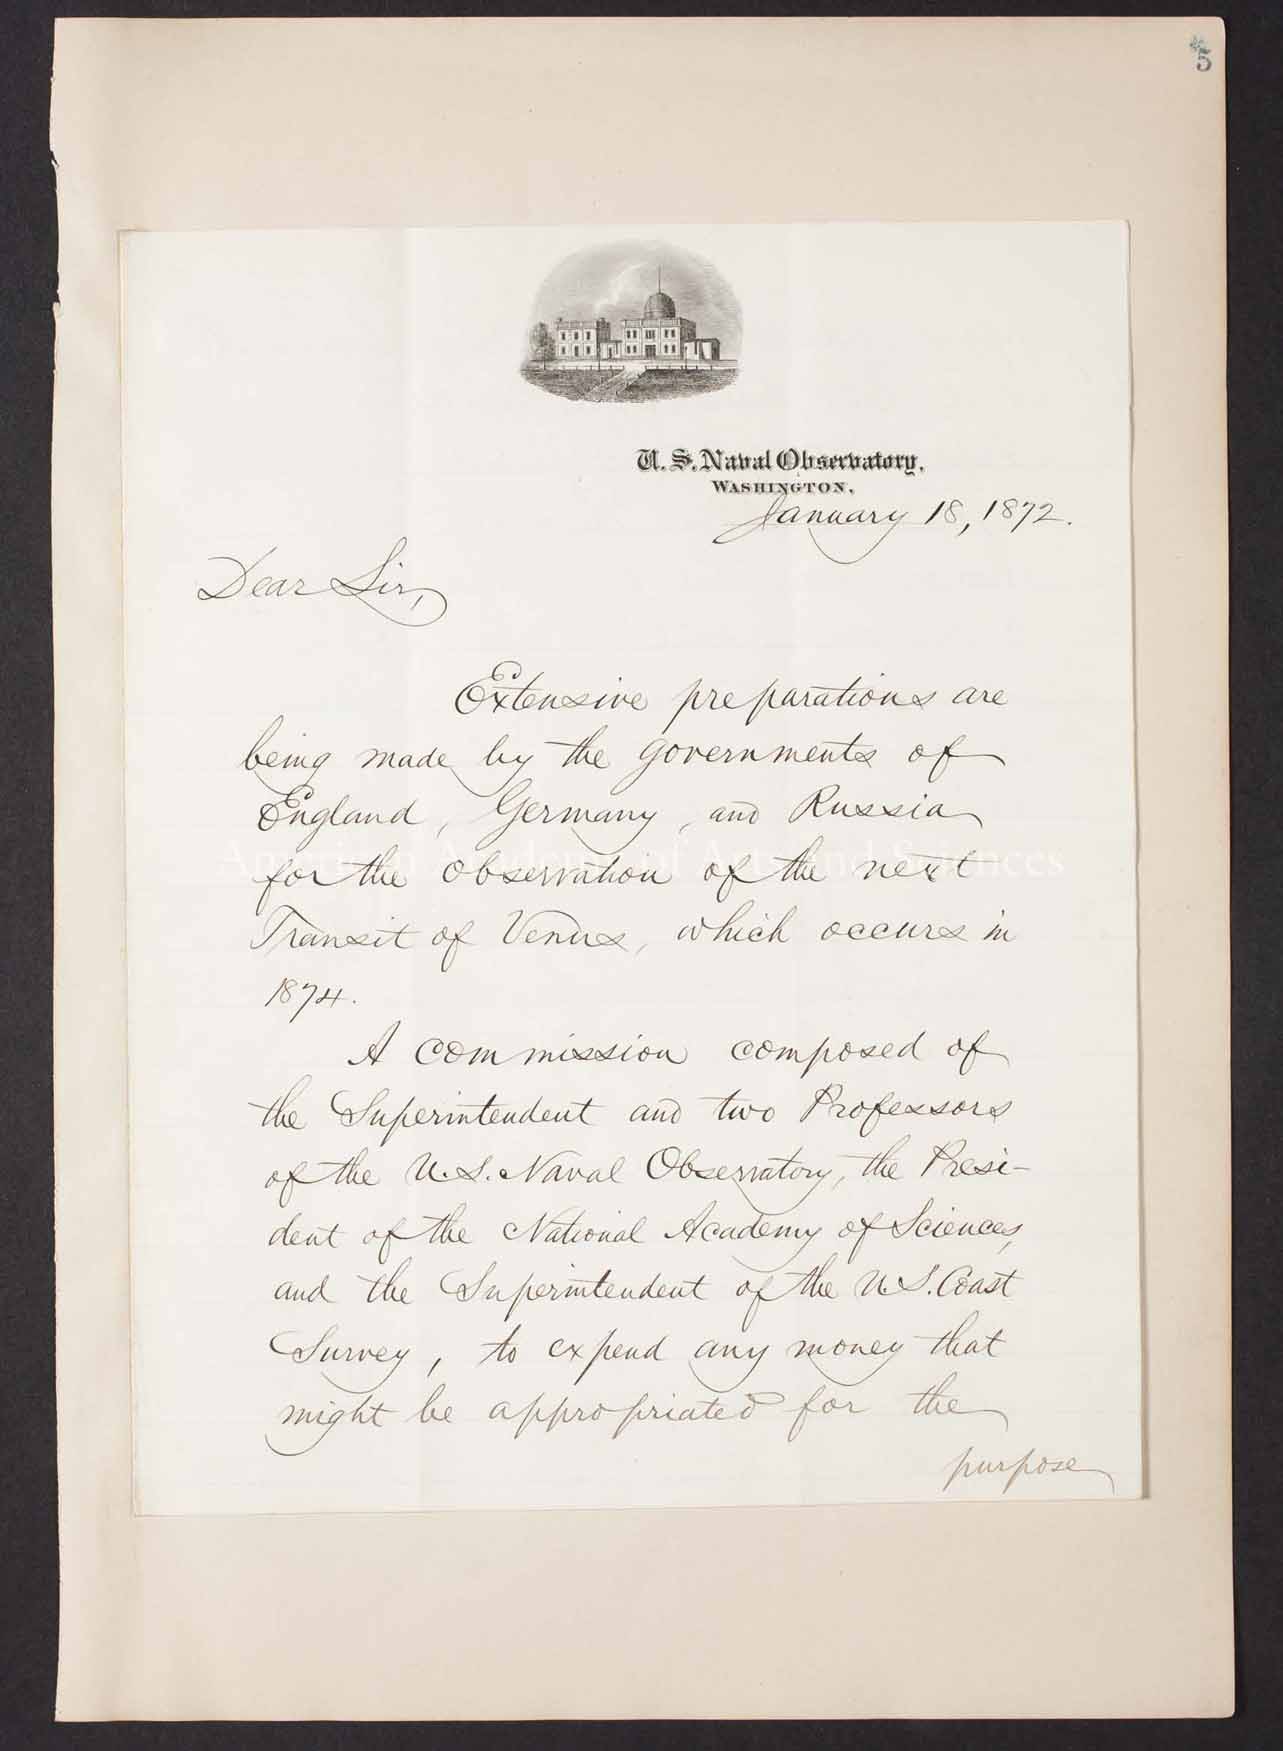 5
U. S. Naval Observatory,
WASHINGTON,
January 18, 1872.
Dear Sir,
Extensive preparations are
being made by the governments of
England, Germany, and Russia
American Academy of Arts and Sciences
for the observation of the next
Transit of Venus, which occurs in
1874.
A commission composed of
the Superintendent and two Professors
of the U.S. Naval Observatory, the Presi-
dent of the National Academy of Sciences,
and the Superintendent of the U.S. Coast
Survey, to expend any money that
might be appropriated for the
purpose